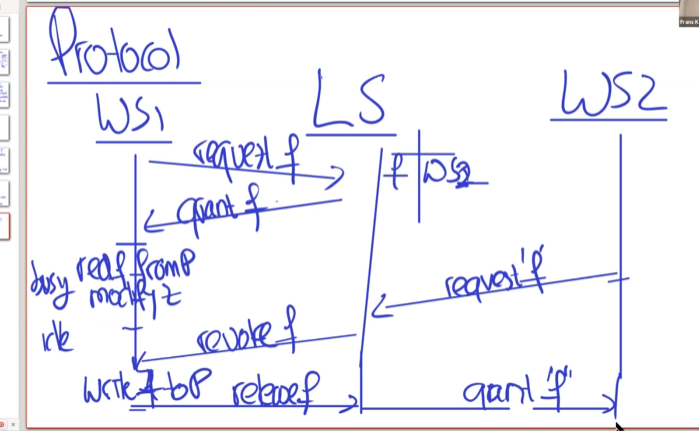 Protocol
WS1 LS WS2
request f
f WS2
grant f
read f from P
busy modify z
request 'f'
idle
revoke f
write f to P release f grant 'f'
Prans K